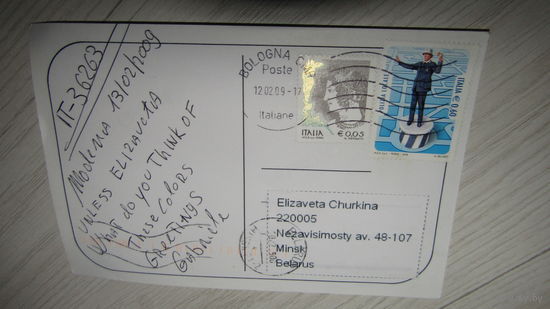 IT-36263
Modena 13/02/2009
UNLESS ELIZAVETA
WHAT do you THINK OF
These COLORS
GREETINGS
Gabriele
BOLOGNA
Poste
12.02.09 -17
Italiane
ITALIA
€ 0,05
ITALIA € 0,60
Elizaveta Churkina
220005
Nezavisimosty av. 48-107
Minsk
Belarus